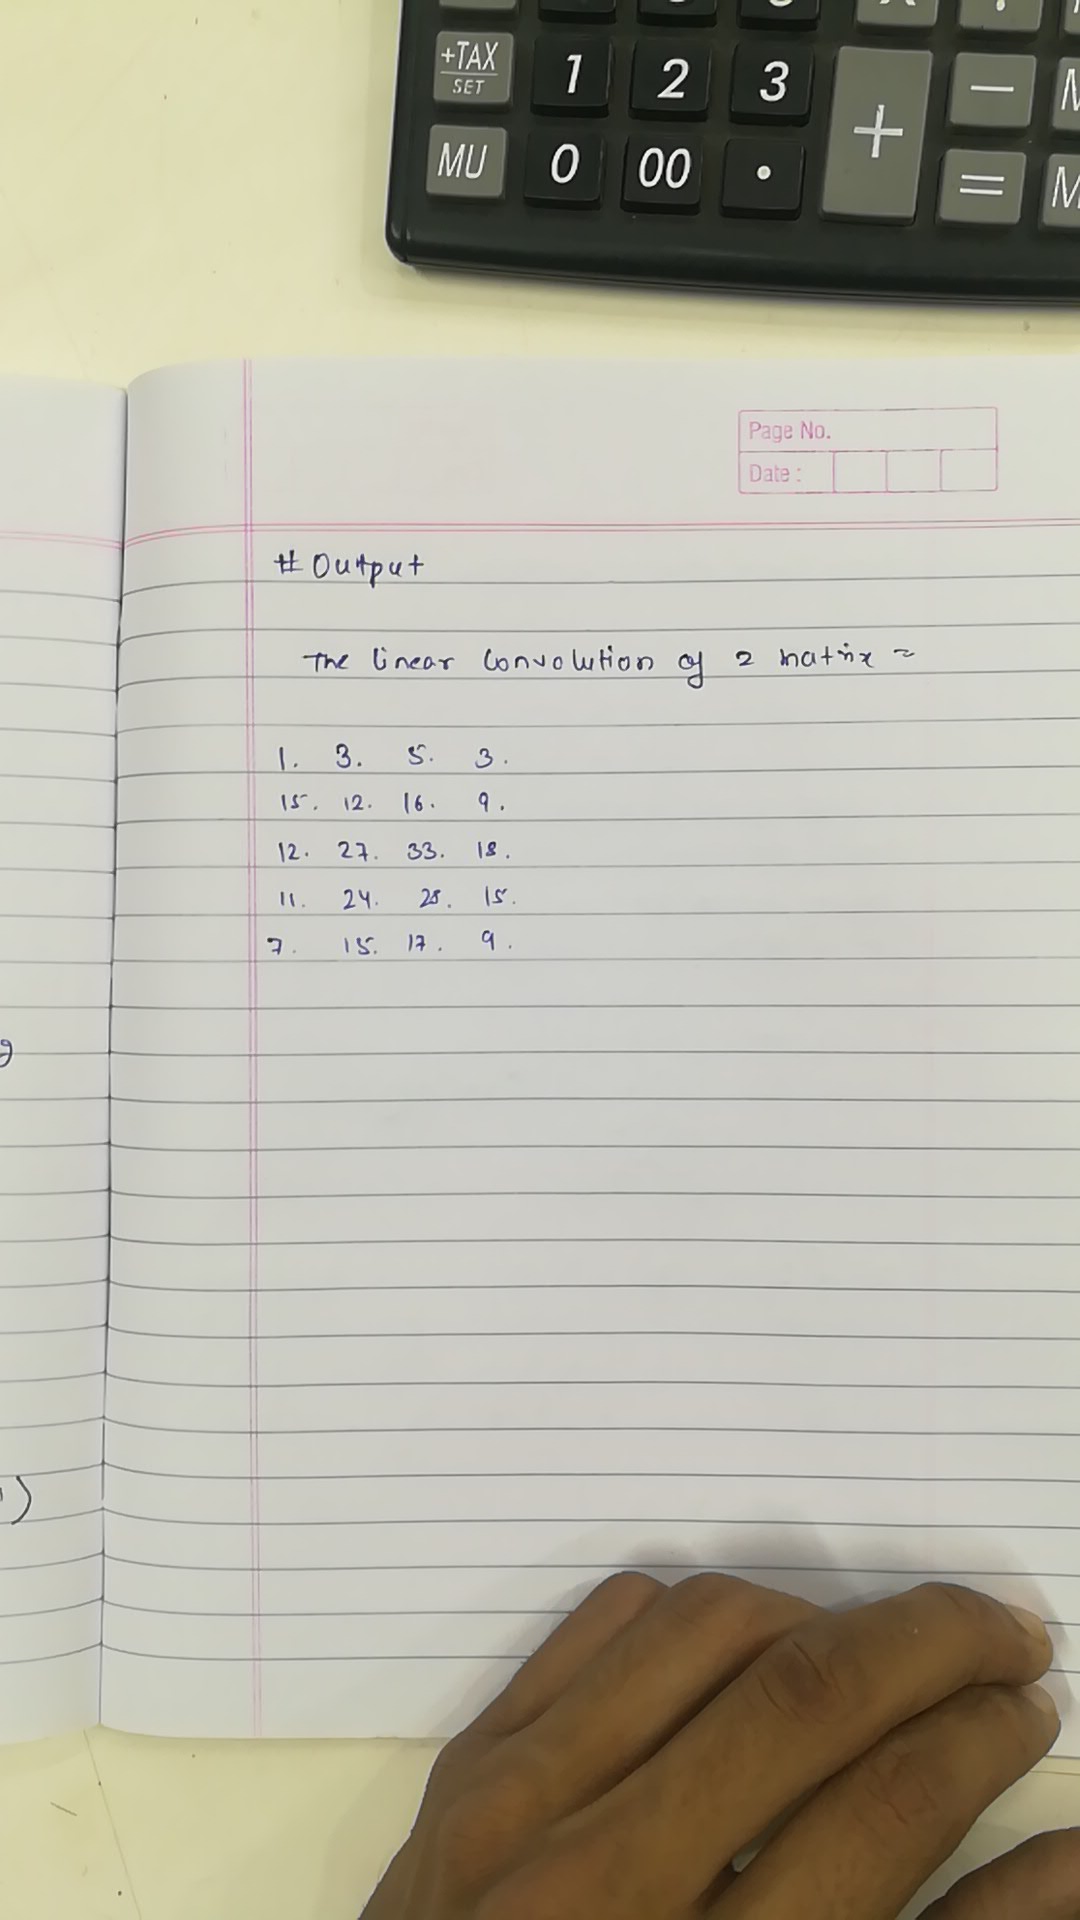 +TAX
SET
1 2 3
+
—
MU 0 00 .
=
Page No.
Date :
# Output
The linear Convolution of 2 matrix =
1. 3. 5. 3.
15. 12. 16. 9.
12. 27. 33. 18.
11. 24. 28. 15.
7. 15. 17. 9.